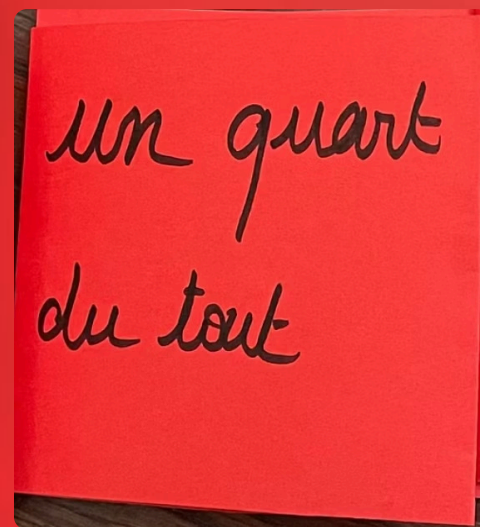 un quart
du tout